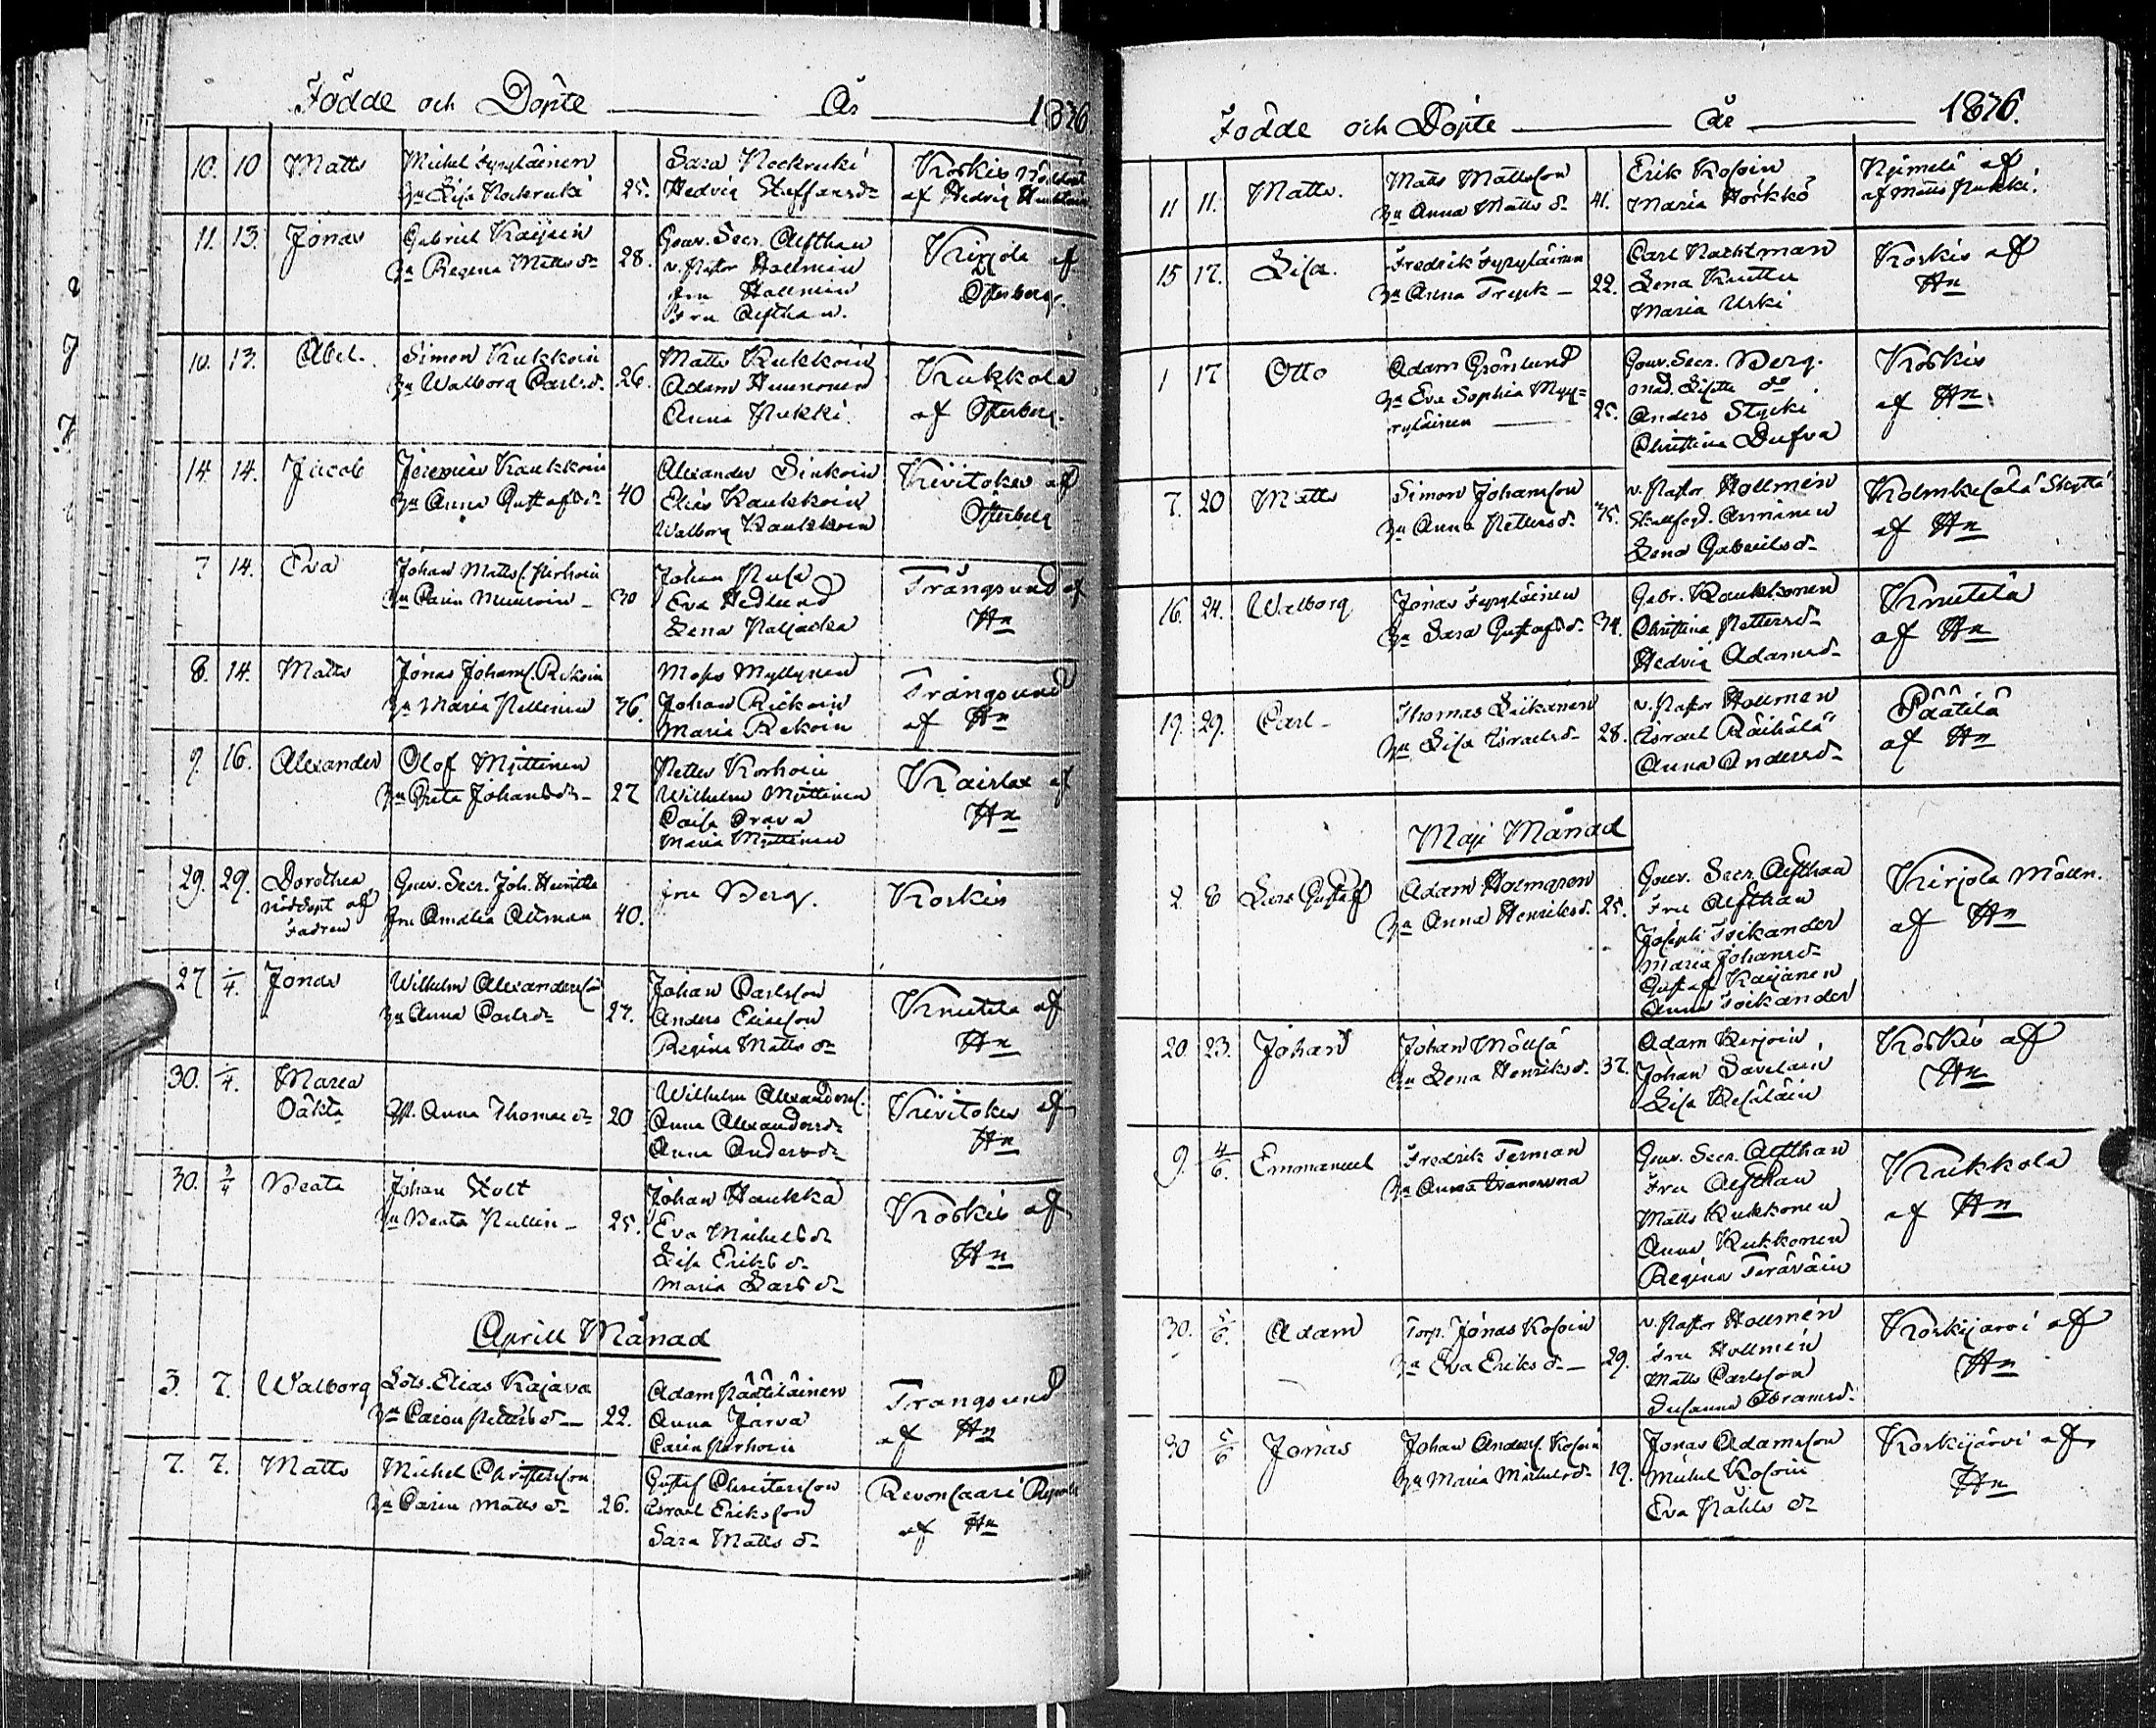 Födde och Döpte År 1876
10. 10 Matts
Michel Pyyläinen
Hu Lisa
25.
Sara
Hedvig Staffansdr
Koskis
af Hedvig
11. 13. Jonas
Gabriel
Hu Regina Mattsdr
28.
Gouv. Secr. Aefthan
v. Pastor Hallmén
fru Hallmén
Fru Aefthan.
Kirjola af
Österberg.
10. 13. Abel.
Simon Kukkoin
Hu Walborg Carlsdr.
26.
Matts Kukkoin
Adam
Anna Pukki.
Kukkola
af Österberg.
14. 14. Jacob
Kaukkoin
Hu Anna Gustafsdr
40
Alexander Sinkoin
Elias Kaukkoin
Walborg Kaukkoin
Kiviitoker af
Österberg
7 14. Eva
Johan Matts.
Hu Carin
30
Johan
Eva Hedlund
Lena
Trångsund af
Hn
8. 14. Matts
Jonas Johans.
Hu Maria Pellinen
36.
Myllynen
Johan
Maria
Trångsund
af Hn
9. 16. Alexander
Olof Myttinen
Hu Greta Johansdr
27
Petter Korhoin
Wilhelm Myttinen
Caisa Orava
Maria Myttinen
Kaislax af
Hn
29. 29. Dorothea
nöddöpt af
Fadren
Gouv. Secr. Joh.
fru Amalia Altman
40.
fru Berg.
Koskis
27 1/4. Jonas
Wilhelm Alexandersson
Hu Anna Carlsdr
27.
Johan Carlsson
Anders Eliasson
Regina Mattsdr
Knutila af
Hn
30. 1/4. Maria
Oäkta
Anna Thomasdr
20
Wilhelm Alexanders.
Anna Alexandersdr
Anna Andersdr
Kiviitoker af
Hn
30. 3/4 Beata
Johan Stolt
Hu Beata Pullin
25.
Johan Haukka
Eva Michelsdr
Lisa Eriksdr
Maria Larsdr
Koskis af
Hn
Aprill Månad
3. 7. Walborg
Lots. Elias Kajava
Hu Carin Pettersdr
22.
Adam Päätiläinen
Anna Järvä
Carin
Trångsund
af Hn
7. 7. Matts
Michel Christersson
Hu Carin Mattsdr
26.
Gustaf Christersson
Israel Eriksson
Sara Mattsdr
Revonsaari
af Hn
Födde och Döpte År 1876.
11 11. Matts.
Matts Mattsson
Hu Anna Mattsdr
41.
Erik Kosoin
Maria Hörkkö
Nijmelä af
af Matts Pukki.
15 17. Lisa.
Fredrik Pyyläinen
Hu Anna
22.
Carl Nachtman
Lena Knutter
Maria Urki
Koskis af
Hn
1 17 Otto
Adam Grönlund
Hu Eva Sophia Myy=
ryläinen
25.
Gouv. Secr. Berg.
mad. do
Anders Stycki
Christina Dufva
Koskis
af Hn.
7. 20 Matts
Simon Johansson
Hu Anna Pettersdr.
35.
v. Pastor Hallmén
Arminen
Lena Gabrielsdr
Kolmkesälä
af Hn
16. 24. Walborg
Jonas Pyyläinen
Hu Sara Gustafsdr.
34.
Gabr. Kaukkonen
Christina Pettersdr
Hedvig Adamsdr
Knutila
af Hn
19. 29. Carl
Thomas Liikanen
Hu Lisa Israelsdr
28.
v. Pastor Hallmén
Israel Räihälä
Anna Andersdr
Päätilä
af Hn
Maji Månad
2 8 Lars Gustaf
Adam Holmgren
Hu Anna Henriksdr.
25.
Gouv. Secr. Aefthan
Fru Aefthan
Joseph Toikander
Maria Johansdr
Gustaf Karjanen
Anna Toikander
Kirjola Mölln.
af Hn
20. 23. Johan
Johan Möllsä
Hu Lena Henriksdr.
37.
Adam Kirjoin
Johan Savolain
Lisa Kesäläin
Koskis af
Hn
9. 4/6. Emmanuel
Fredrik Terman
Hu Anna Ivanovna
Gouv. Secr. Aefthan
Fru Aefthan
Matts Kukkonen
Anna Kukkonen
Regina Teräväin
Kukkola
af Hn
30. 5/6. Adam
Torp. Jonas Kosoin
Hu Eva Eriksdr
29.
v. Pastor Hallmén
Fru Hallmén
Matts Carlsson
Susanna Abramsdr.
Koskijärvi af
Hn
30 5/6 Jonas
Johan Anders. Kosoin
Hu Maria Michelsdr
19.
Jonas Adamsson
Michel Kosoin
Eva Påhlsdr
Koskijärvi af
Hn